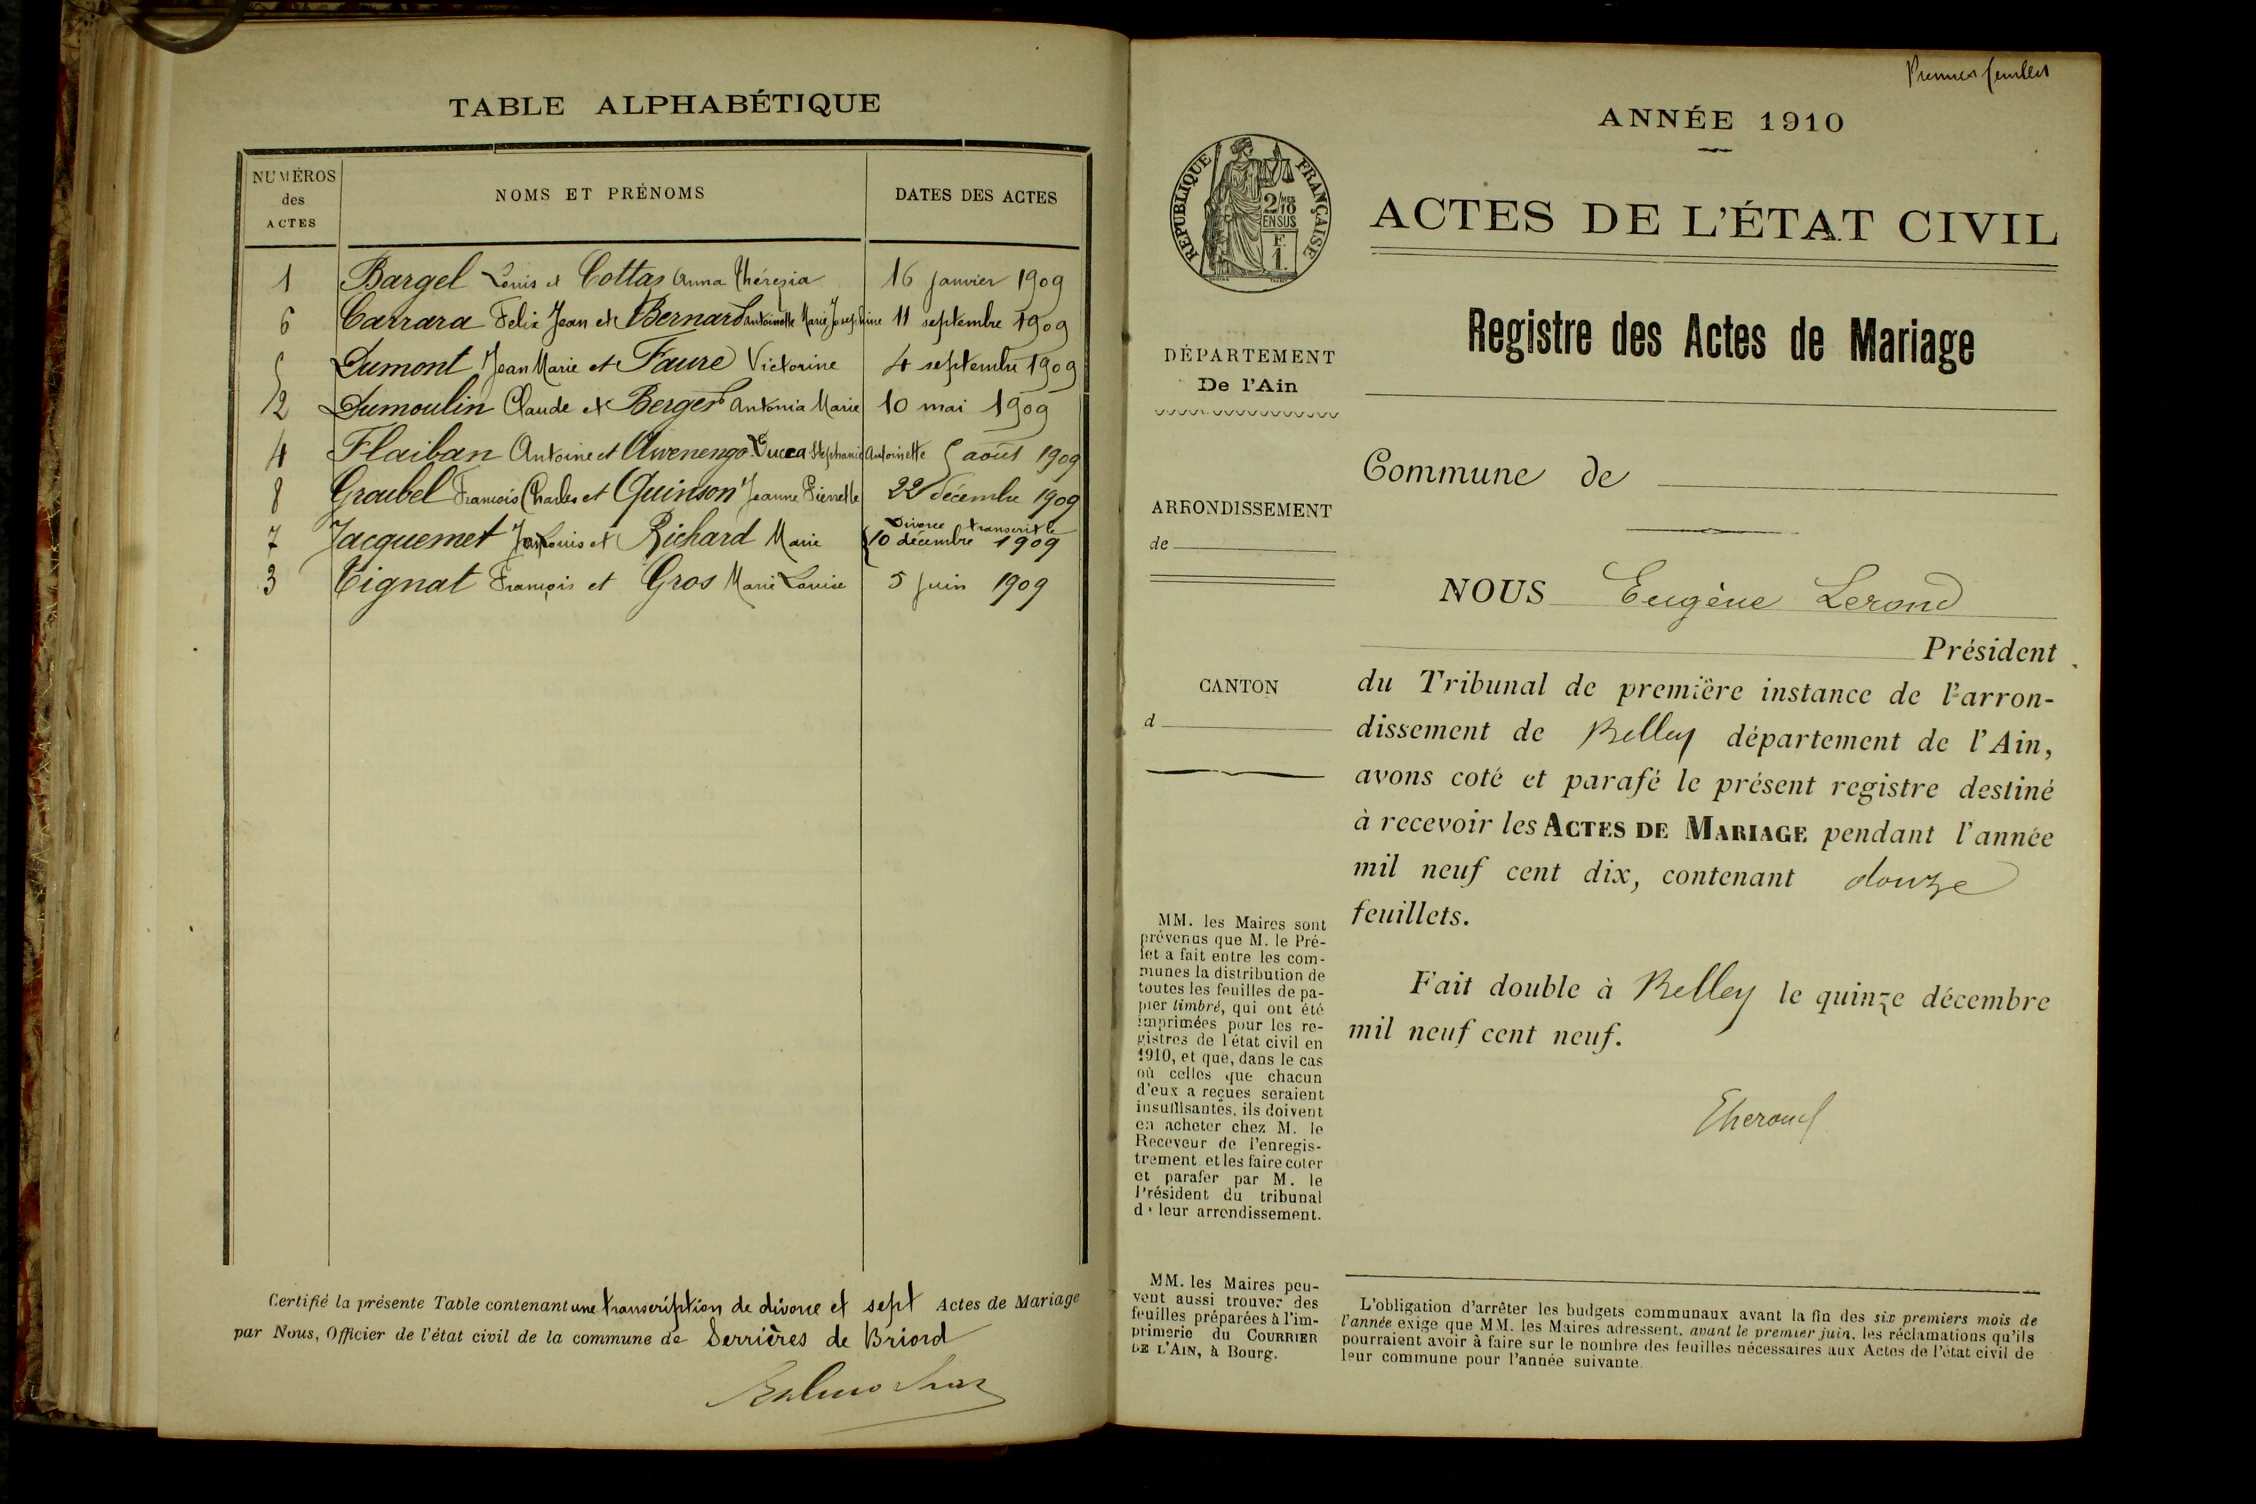 TABLE ALPHABÉTIQUE
NUMÉROS des ACTES
NOMS ET PRÉNOMS
DATES DES ACTES
1 Bargel Louis et Cottas Anna Thérésia 16 janvier 1909
6 Carrara Felix Jean et Bernard Antoinette Marie Josephine 11 septembre 1909
5 Dumont Jean Marie et Faure Victorine 4 septembre 1909
2 Dumoulin Claude et Berger Antonia Marie 10 mai 1909
4 Flaiban Antoine et Avvenengo Ducca Stephanie Antoinette 5 août 1909
8 Groubel François Charles et Quinson Jeanne Pierrette 22 décembre 1909
7 Jacquemet Louis et Richard Marie Divorce transcrit le 10 décembre 1909
3 Tignat François et Gros Marie Louise 5 juin 1909
Certifié la présente Table contenant une transcription de divorce et sept Actes de Mariage
par Nous, Officier de l'état civil de la commune de Serrières de Briord
Premier feuillet
ANNÉE 1910
RÉPUBLIQUE FRANÇAISE
2/10 EN SUS
F. 1.
ACTES DE L'ÉTAT CIVIL
Registre des Actes de Mariage
DÉPARTEMENT
De l'Ain
ARRONDISSEMENT
de
CANTON
d
MM. les Maires sont
prévenus que M. le Pré-
fet a fait entre les com-
munes la distribution de
toutes les feuilles de pa-
pier timbré, qui ont été
imprimées pour les re-
gistres de l'état civil en
1910, et que, dans le cas
où celles que chacun
d'eux a reçues seraient
insuffisantes, ils doivent
en acheter chez M. le
Receveur de l'enregis-
trement et les faire coter
et parafer par M. le
Président du tribunal
de leur arrondissement.
MM. les Maires peu-
vent aussi trouver des
feuilles préparées à l'im-
primerie du COURRIER
DE L'AIN, à Bourg.
Commune de
NOUS Eugène Lerond
Président
du Tribunal de première instance de l'arron-
dissement de Belley département de l'Ain,
avons coté et parafé le présent registre destiné
à recevoir les ACTES DE MARIAGE pendant l'année
mil neuf cent dix, contenant douze
feuillets.
Fait double à Belley le quinze décembre
mil neuf cent neuf.
L'obligation d'arrêter les budgets communaux avant la fin des six premiers mois de
l'année exige que MM. les Maires adressent, avant le premier juin, les réclamations qu'ils
pourraient avoir à faire sur le nombre des feuilles nécessaires aux Actes de l'état civil de
leur commune pour l'année suivante.